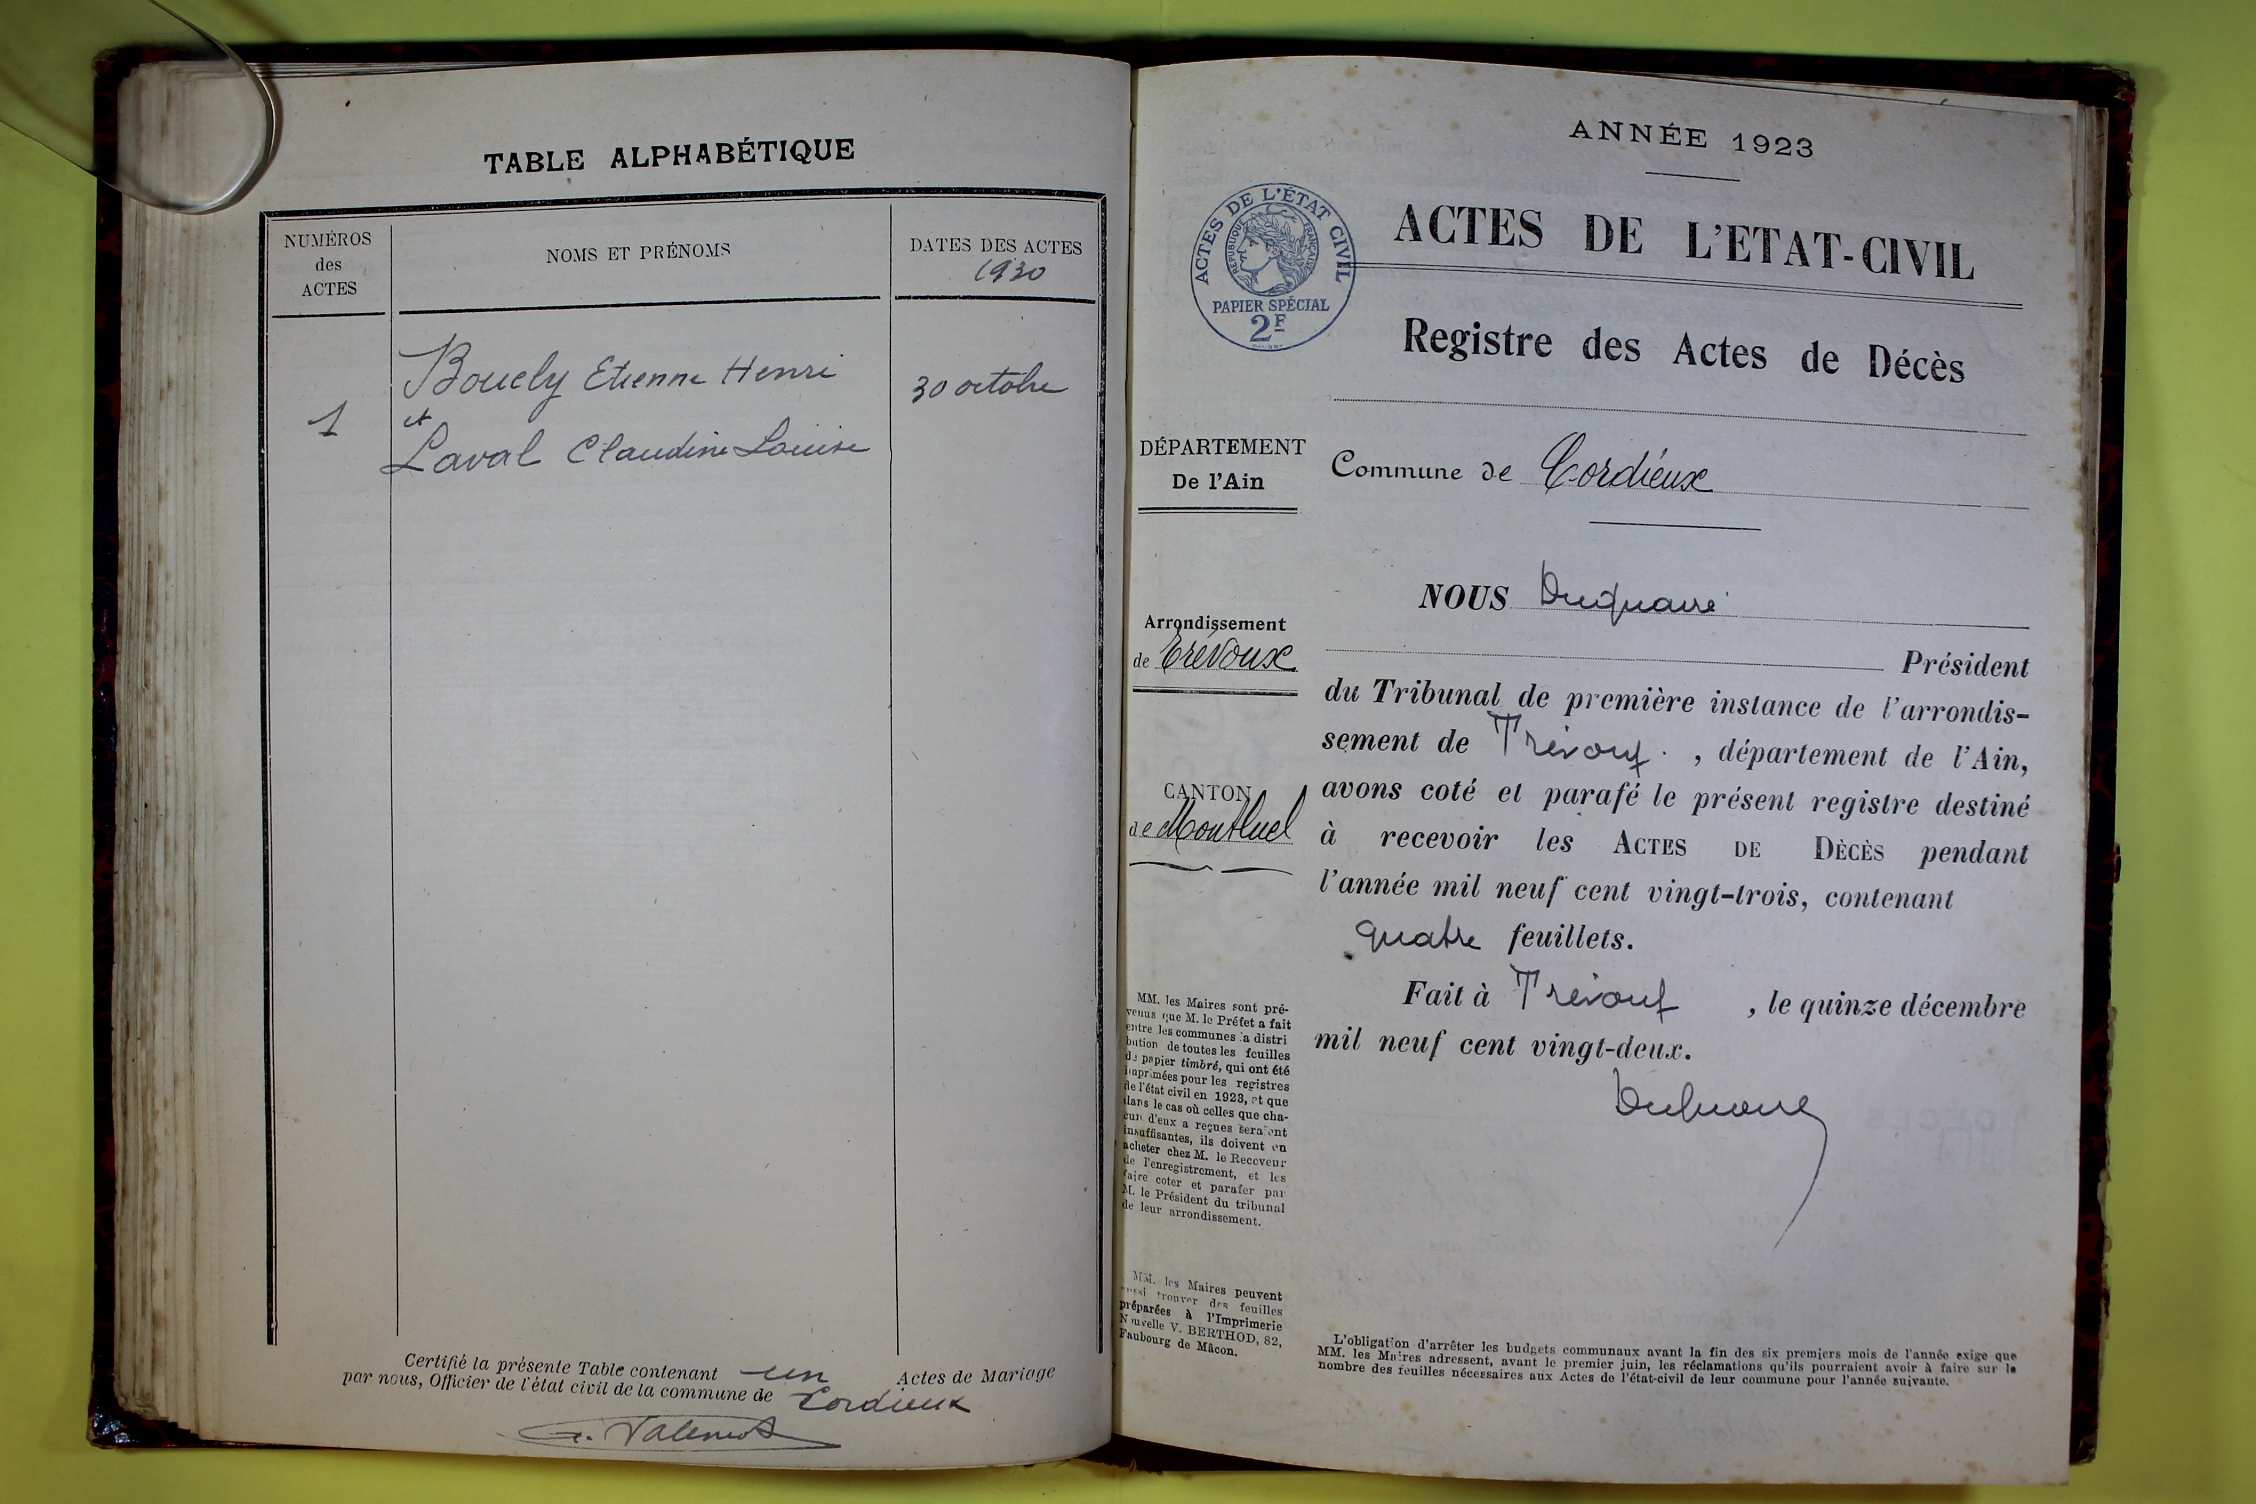 TABLE ALPHABÉTIQUE
NUMÉROS
des
ACTES
NOMS ET PRÉNOMS
DATES DES ACTES
1930
Bouely Etienne Henri
30 octobre
1
et
Laval Claudine Louise
Certifié la présente Table contenant un Actes de Mariage
par nous, Officier de l'état civil de la commune de Cordieux
ANNÉE 1923
ACTES DE L'ÉTAT CIVIL
RÉPUBLIQUE FRANÇAISE
PAPIER SPÉCIAL
2F
ACTES DE L'ETAT-CIVIL
Registre des Actes de Décès
DÉPARTEMENT
De l'Ain
Commune de Cordieux
Arrondissement
de Trévoux
CANTON
de Montluel
NOUS
Président
du Tribunal de première instance de l'arrondis-
sement de Trévoux, département de l'Ain,
avons coté et parafé le présent registre destiné
à recevoir les ACTES DE DÈCÈS pendant
l'année mil neuf cent vingt-trois, contenant
quatre feuillets.
Fait à Trévoux, le quinze décembre
mil neuf cent vingt-deux.
MM. les Maires sont pré-
venus que M. le Préfet a fait
entre les communes la distri
bution de toutes les feuilles
de papier timbré, qui ont été
imprimées pour les registres
de l'état civil en 1923, et que
dans le cas où celles que cha-
cun d'eux a reçues seraient
insuffisantes, ils doivent en
acheter chez M. le Receveur
de l'enregistrement, et les
faire coter et parafer par
M. le Président du tribunal
de leur arrondissement.
MM. les Maires peuvent
aussi trouver des feuilles
préparées à l'Imprimerie
Nouvelle V. BERTHOD, 82,
Faubourg de Mâcon.
L'obligation d'arrêter les budgets communaux avant la fin des six premiers mois de l'année exige que
MM. les Maires adressent, avant le premier juin, les réclamations qu'ils pourraient avoir à faire sur le
nombre des feuilles nécessaires aux Actes de l'état-civil de leur commune pour l'année suivante.